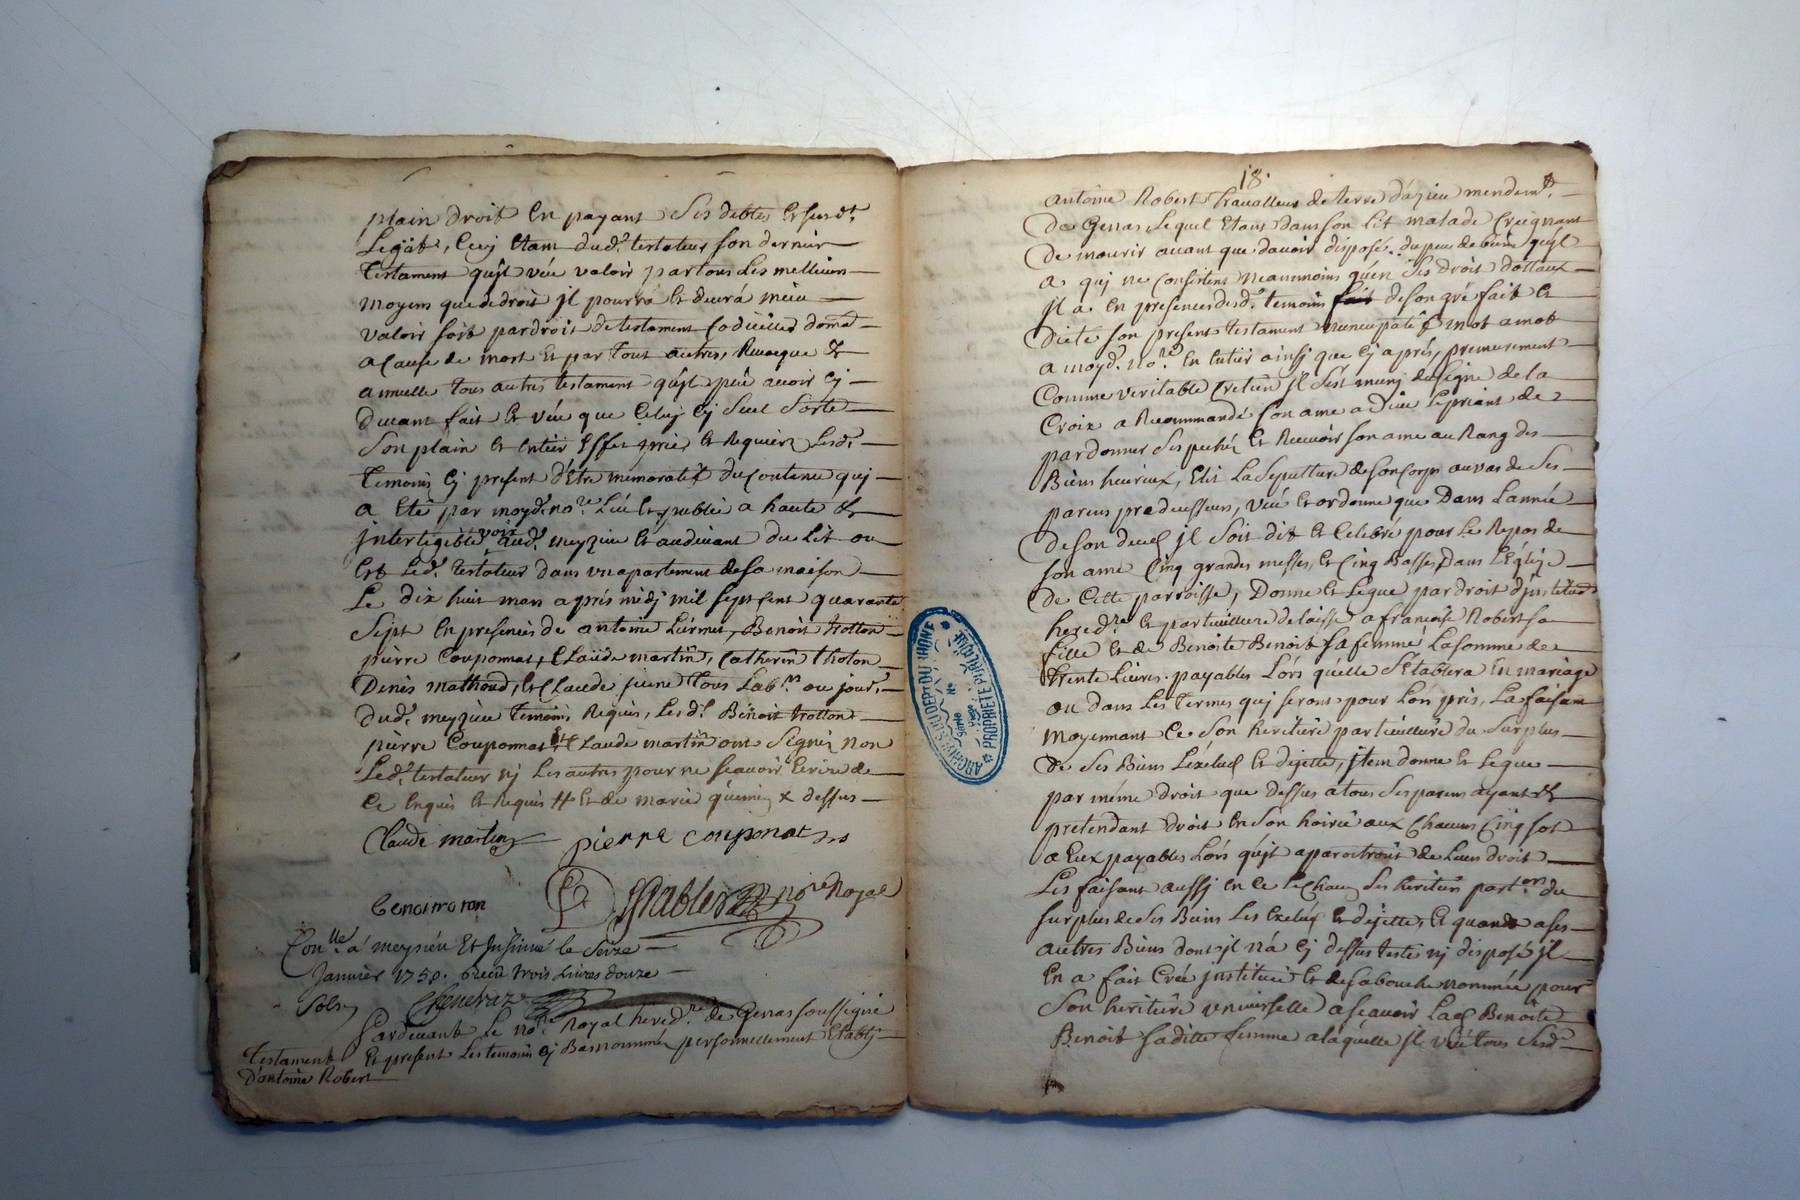 plain droit en payant Ses debtes et susd.t
Legats, Cecy etant dud.t testateur son dernier
testament quil veu valoir par tous Les meilleurs
moyens que de droit jl pourra et devra mieu
valoir soit par droit de testament Codicille donné
a Cause de mort et par tout autres, Revoque &
annulle tous autres testament quil peu avoir cy
devant fait et veu que Celuy cy Seul Sorte
Son plain et entier effet prie et Requiert Lesd.
temoins cy present d'Etre memoratif du Contenu qui
a Eté par moyd. no.re Leu et publié a haute &
jntertigible voix aud. meyzieu et audevant du Lit ou
est Led. testateur dans un apartement de sa maison
Le dix huit mars après midj mil sept Cent quarante
Sept en presences de antoine Lermet, Benoit trotton
pierre Couponnat, Claude martin, Catherin thoton
Denis mathoud, et Claude june tous Lab.rs ou jour.
dud. meyzieu temoins Requis, Lesd. Benoit trotton
pierre Couponnat et Claude martin ont Signez non
Led. testateur nj Les autres pour ne sçavoir Ecrire de
Ce enquis et Requis # et de marie x dessus
Claude martin pierre couponat
benoit troton no.re Royal
Con.lle a meysieu Et Jnsinué le Seize
Janvier 1750. Receu trois Livres douze
Sols
Pardevant Le no.re Royal hered.re de Genas soussigné
Et present Les temoins cy Bas nommés personnellement Etably
Testament
D'antoine Robert
18.
antoine Robert travailleur de terre d'azieu mendem.t
De Genas Lequel Etant dans son Lit malade Creignant
De mourir avant que davoir disposé du peu de biens qu'jl
a quj ne Consistent neanmoins qu'en Ses droit dottaux
jl a en presences desd. temoins fait de son gré fait et
Dicté son present testament nuncupatif mot a mot
a moyd. no.re en entier ainsj que Cy après, premierement
Comme veritable Cretien jl S'est munj du signe de la
Croix a Recommandé son ame a Dieu Le priant de
pardonner Ses pechés et Recevoir son ame au Rang des
Bien heureux, Elit La Sepulture de son Corps au vas de Ses
parens predecesseurs, veut et ordonne que Dans Lannée
de son deces jl Soit dit et Celebré pour Le Repos de
son ame Cinq grandes messes, et Cinq Basses, Dans L'Eglise
de Cette parroisse, Donne et Legue par droit d'jnstitu.on
hered.re et particulliere delaisse a françoise Robert sa
fille et de Benoite Benoit sa femme La somme de
trente Livres payables Lors quelle S'Etablira en mariage
ou dans Les termes quj seront pour Lors pris, La faisant
moyennant Ce Son heritiere particulliere du Surplus
de Ses Biens L'exclud et dejette, jtem donne et Legue
par même droit que dessus a tous Ses parens ayant &
pretendant droit en Son hoirie aux Chacuns Cinq sol
a Eux payables Lors qu'jl aparoitront de Leurs droit
Les faisant aussj en Ce Ses heritiers part.ers du
surplus de Ses Biens Les exclud et dejette, et quand a ses
autres Biens dont jl n'a cj dessus testé nj disposé jl
en a fait Créé jnstitué et de sa bouche nommée pour
Son heritiere universelle a sçavoir Benoite
Benoit sa ditte femme a laquelle jl veut tous Sesd.
ARCHIVES DU DEPT DU RHONE
Série
No
PROPRIETE PUBLIQUE